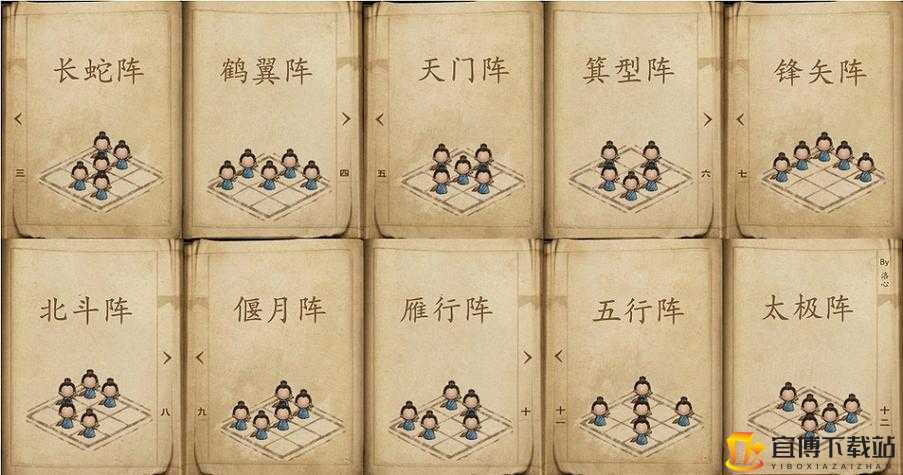 长蛇阵
三
鹤翼阵
四
天门阵
五
箕型阵
六
锋矢阵
七
北斗阵
八
偃月阵
九
雁行阵
十
五行阵
十一
太极阵
十二
By
洛心
宜博下载站
YIBOXIAZAIZHAN